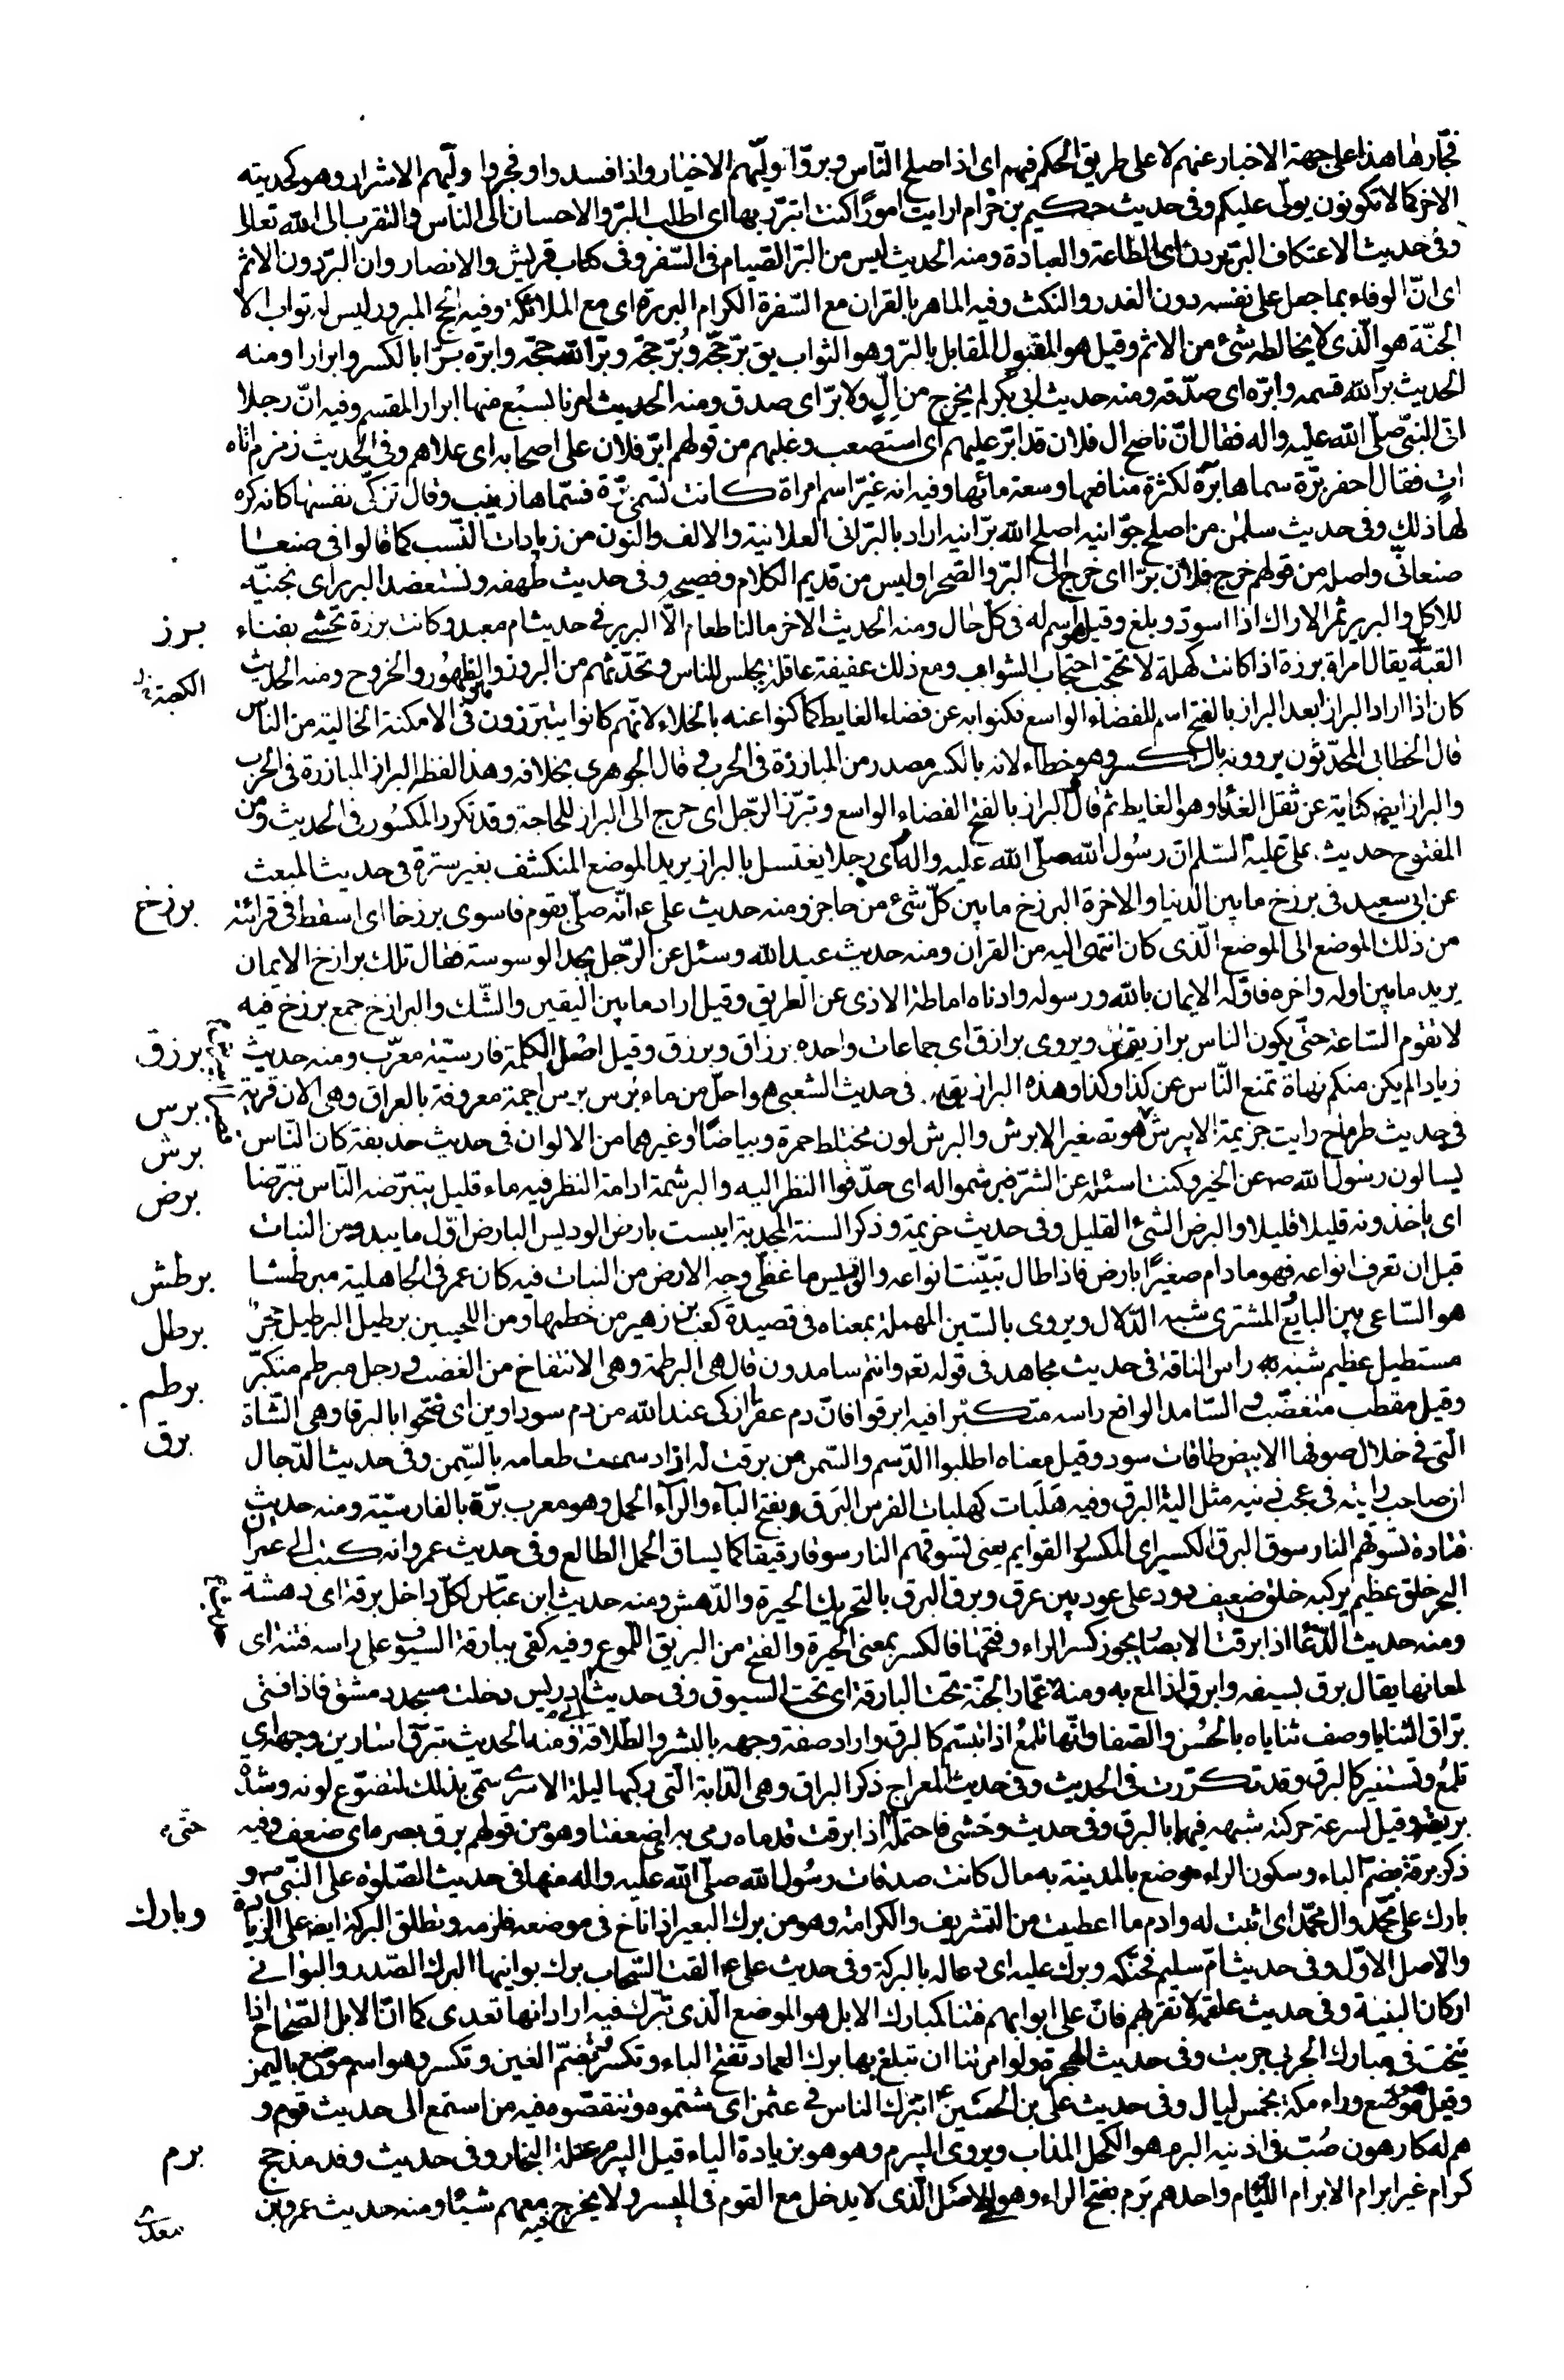 فجّارها هذا على جهة الاخبار عنهم لا على طريق الحكم فيهم اى اذا صلح النّاس وبرّوا توليّهم الاخيار واذا فسدوا وفجروا وليّهم الاشرار وهو كحديثه
الاخر كما لا تكونون يولّى عليكم وفى حديث حكيم بن حزام ارايت امورًا كنت اتبرّر بها اى اطلب البرّ والاحسان الى الناس والتقرب الى الله تعالى
وفى حديث الاعتكاف البرّ تردن اى الطاعة والعبادة ومنه الحديث ليس من البرّ الصّيام فى السّفر وفى كتاب قريش والانصار وان البرّ دون الاثم
اى انّ الوفاء بما جعل على نفسه دون الغدر والنكث وفيه الماهر بالقران مع السّفرة الكرام البررة اى مع الملائكة وفيه الحجّ المبرور ليس له ثواب الا
الجنّة هو الّذى لا يخالطه شئ من الاثم وقيل هو المقبول المقابل بالبرّ وهو الثواب يق برّ حجّه وبُرّ حجّه وبرّ الله حجّه وابرّه برّا بالكسر وابرارا ومنه
الحديث برّ الله قسمه وابرّه اى صدّقه ومنه حديث ابى بكر لم يخرج من الٍّ ولا برّ اى صدق ومنه الحديث امرنا بسبع منها ابرار المقسم وفيه انّ رجلا
اتى النبىّ صلّى الله عليه واله فقال انّ ناضح ال فلان قد ابرّ عليهم اى استصعب وغلبهم من قولهم ابرّ فلان على اصحابه اى علاهم وفى الحديث زمزم اتاه
اتٍ فقال احفر برّة سماها برّة لكثرة منافعها وسعة مائها وفيه انه غيّر اسم امراة كانت تسمّى برّة فسمّاها زينب وقال تزكّى نفسها كانه كره
لها ذلك وفى حديث سلمٰن من اصلح جوّانيه اصلح الله برّانيه اراد بالبرّانى العلانية والالف والنون من زيادات النّسب كما قالوا فى صنعا
صنعانىّ واصله من قولهم خرج فلان برّا اى خرج الى البرّ والصّحرا وليس من قديم الكلام وفصيحه وفى حديث طهفه ونستعضد البرير اى نجنيه
للاكل والبرير ثمر الاراك اذا اسودّ وبلغ وقيل هو اسم له فى كلّ حال ومنه الحديث الاخر مالنا طعام الّا البرير فى حديث ام معبد وكانت برزة تحتبى بفناء
برز
القبّة يقال امراة برزة اذا كانت كهلة لا تحتجب احتجاب الشواب ومع ذلك عفيفة عاقلة يجلس للناس وتحدّثهم من البروز والظهُور والخروج ومنه الحديث
كان اذا اراد البراز ابعد البراز بالفتح اسم للفضاء الواسع فكنوا به عن قضاء الغايط كما كنوا عنه بالخلاء لانّهم كانوا يتبرّزون فى الامكنة الخالية من النّاس
قال الخطابى المحدّثون يروونه بالكسر وهو خطاء لانه بالكسر مصدر من المبارزة فى الحرب وقال الجوهرى بخلافه وهذا لفظه البراز المبارزة فى الحرب
والبراز ايضا كناية عن ثفل الغذاء وهو الغايط ثم قال البراز بالفتح الفضاء الواسع وتبرّز الرّجل اى خرج الى البراز للحاجة وقد تكرر المكسُور فى الحديث ومن
المفتوح حديث على عليه السّلم ان رسُول الله صلّى الله عليه واله راى رجلا يغتسل بالبراز يريد الموضع المنكشف بغير سترة فى حديث المبعث
عن ابى سعيد فى برزخ مابين الدنيا والاخرة البرزخ مابين كلّ شئ من حاجز ومنه حديث على ع انّه صلّى بقوم فاسوى برزخا اى اسقط فى قرائته
برزخ
من ذلك الموضع الى الموضع الّذى كان انتهى اليه من القران ومنه حديث عبد الله وسئل عن الرّجل يجد الوسوسة فقال تلك برازخ الايمان
يريد مابين اوله واخره فاوّله الايمان بالله ورسوله وادناه اماطة الاذى عن الطريق وقيل اراد مابين اليقين والشّك والبرازخ جمع برزخ فيه
لا تقوم السّاعة حتّى يكون الناس برازيق ويروى برازق اى جماعات واحده برزاق وبرزق وقيل اصل الكلمة فارسيّة معرّب ومنه حديث
برزق
زياد الم يكن منكم نهاة تمنع النّاس عن كذا وكذا وهذه البرازيق فى حديث الشعبى هو احلّ من ماء بُرس برس اجمة معروفة بالعراق وهى الان قرية
برس
فى حديث طرماح رايت جزيمة الابرش هو تصغير الابرش والبرش لون مختلط حمرة وبياضًا او غيرهما من الالوان فى حديث حذيفة كان النّاس
برش
يسالون رسول الله ص عن الخير وكنت اسئله عن الشرّ فبرشموا له اى حدّقوا النظر اليه والبرشمة ادامة النظر فيه ماء قليل يتبرّضه النّاس تبرّضا
برض
اى ياخذونه قليلا قليلا والبرض الشئ القليل وفى حديث خزيمة وذكر السنة المجدبة ايبست بارض الوديس البارض اوّل ما يبدو من النبات
قبل ان تعرف انواعه فهو مادام صغيرًا بارض فاذا طال تبيّنت انواعه والوديس ما غطّى وجه الارض من النبات فيه كان عمر فى الجاهلية مبرطشا
برطش
هو السّاعى بين البايع والمشترى شبه الدّلال ويروى بالسّين المهملة بمعناه فى قصيدة كعب بن زهير من خطمها ومن اللحيين برطيل البرطيل حجرٌ
برطل
مستطيل عظيم شبه به راس الناقة فى حديث مجاهد فى قوله تع وانتم سامدون قال هى البرطمة وهى الانتفاخ من الغضب ورجل مبرطم متكبّر
برطم
وقيل مقطب متغضّب والسّامد الرافع راسه متكبرا فيه ابرقوا فانّ دم عفراء ازكى عند الله من دم سوداوين اى ضحّوا بالبرقا وهى الشّاة
برق
الّتى فى خلال صوفها الابيض طاقات سود وقيل معناه اطلبوا الدّسم والسّمن من برقت له اذا دسمت طعامه بالسّمن وفى حديث الدّجال
ان صاحب رايته فى عجب ذنبه مثل الية البرق وفيه هَلَبات كهلبات الفرس البَرَق بفتح البآء والرّآء الحمل وهو معرب برّة بالفارسيّة ومنه حديث
قتادة تسوقهم النار سوق البرق الكسير اى المكسور القوايم يعنى تسوقهم النار سوقا رقيقا كما يساق الحمل الطالع وفى حديث عمرو انه كتب الى عمر ان
البحر خلق عظيم يركبه خلق ضعيف دود على عود بين غرق وبرق البرق بالتحريك الحيرة والدّهش ومنه حديث ابن عبّاس لكلّ داخل برقة اى دهشة
ومنه حديث الدّعا اذا برقت الابصار يجوز كسر الراء وفتحها فالكسر بمعنى الحيرة والفتح من البريق اللّموع وفيه كفى ببارقة السيوف على راسه فتنة اى
لمعانها يقال برق بسيفه وابرق اذا لمع به ومنه عمّار الجنّة تحت البارقة اى تحت السيوف وفى حديث ابى ادريس دخلت مسجد دمشق فاذا فتى
برّاق الثنايا وصف ثناياه بالحُسن والصّفا وانّها تلمعُ اذا تبسّم كالبرق واراد صفة وجهه بالبشر والطّلاقة ومنه الحديث تبرّق اسارير وجهه اى
تلمعُ وتستنير كالبرق وقد تكرّرت فى الحديث وفى حديث المعراج ذكر البراق وهى الدّابة الّتى ركبها ليلة الاسرى سمّى بذلك لنصوع لونه وشدّة
بريقه وقيل لسرعة حركته شبهه فيها بالبرق وفى حديث وحشى فاحتمله اذا برقت قدماه رمى به اى ضعفتا وهو من قولهم برق بصره اى ضعف وفيه
حتّى
ذكر برقة بضمّ الباء وسكون الراء موضع بالمدينة به مال كانت صدقات رسُول الله صلّى الله عليه واله منها فى حديث الصّلوة على النّبى ص و
بارك على محمّد وال محمّد اى اثبت له وادم ما اعطيت من التشريف والكرامة وهو من برك البعير اذا ناخ فى موضعه فلزمه وتطلق البركة ايضا على الزيادة
وبارك
والاصل الاوّل وفى حديث امّ سليم فحنّكه وبرك عليه اى دعا له بالبركة وفى حديث على ع القت السّحاب برك بوانيها البرك الصّدر والبوانى
اركان البنية وفى حديث علقمة لا تقربهم فانّ على ابوابهم فتنا كمبارك الابل هو الموضع الّذى تبرك فيه اراد انها تعدى كما انّ الابل الصّحاح اذا
نيخت فى مبارك الجربى جربت وفى حديث الهجرة لو امرتنا ان تبلغ بها برك الغماد تفتح الباء وتكسر وتضمّ الغين وتكسر وهو اسم موضع باليمن
وقيل هو موضع وراء مكة بخمس ليال وفى حديث على بن الحسَين ع ابترك الناس فى عثمٰن اى شتموه وتنقصّوه فيه من استمع الى حديث قوم و
هم له كارهون صُبّ فى اذنيه البرم هو الكحل المذاب ويروى البيرم وهو هو بزيادة الياء قيل البيرم عتلة النجار وفى حديث وفد مذحج
برم
كرام غير ابرام الابرام اللّئام واحدهم بَرَم بفتح الراء وهو فى الاصل الّذى لا يدخل مع القوم فى الميسر ولا يخرج معهم شيئا ومنه حديث عمرو بن
معدى